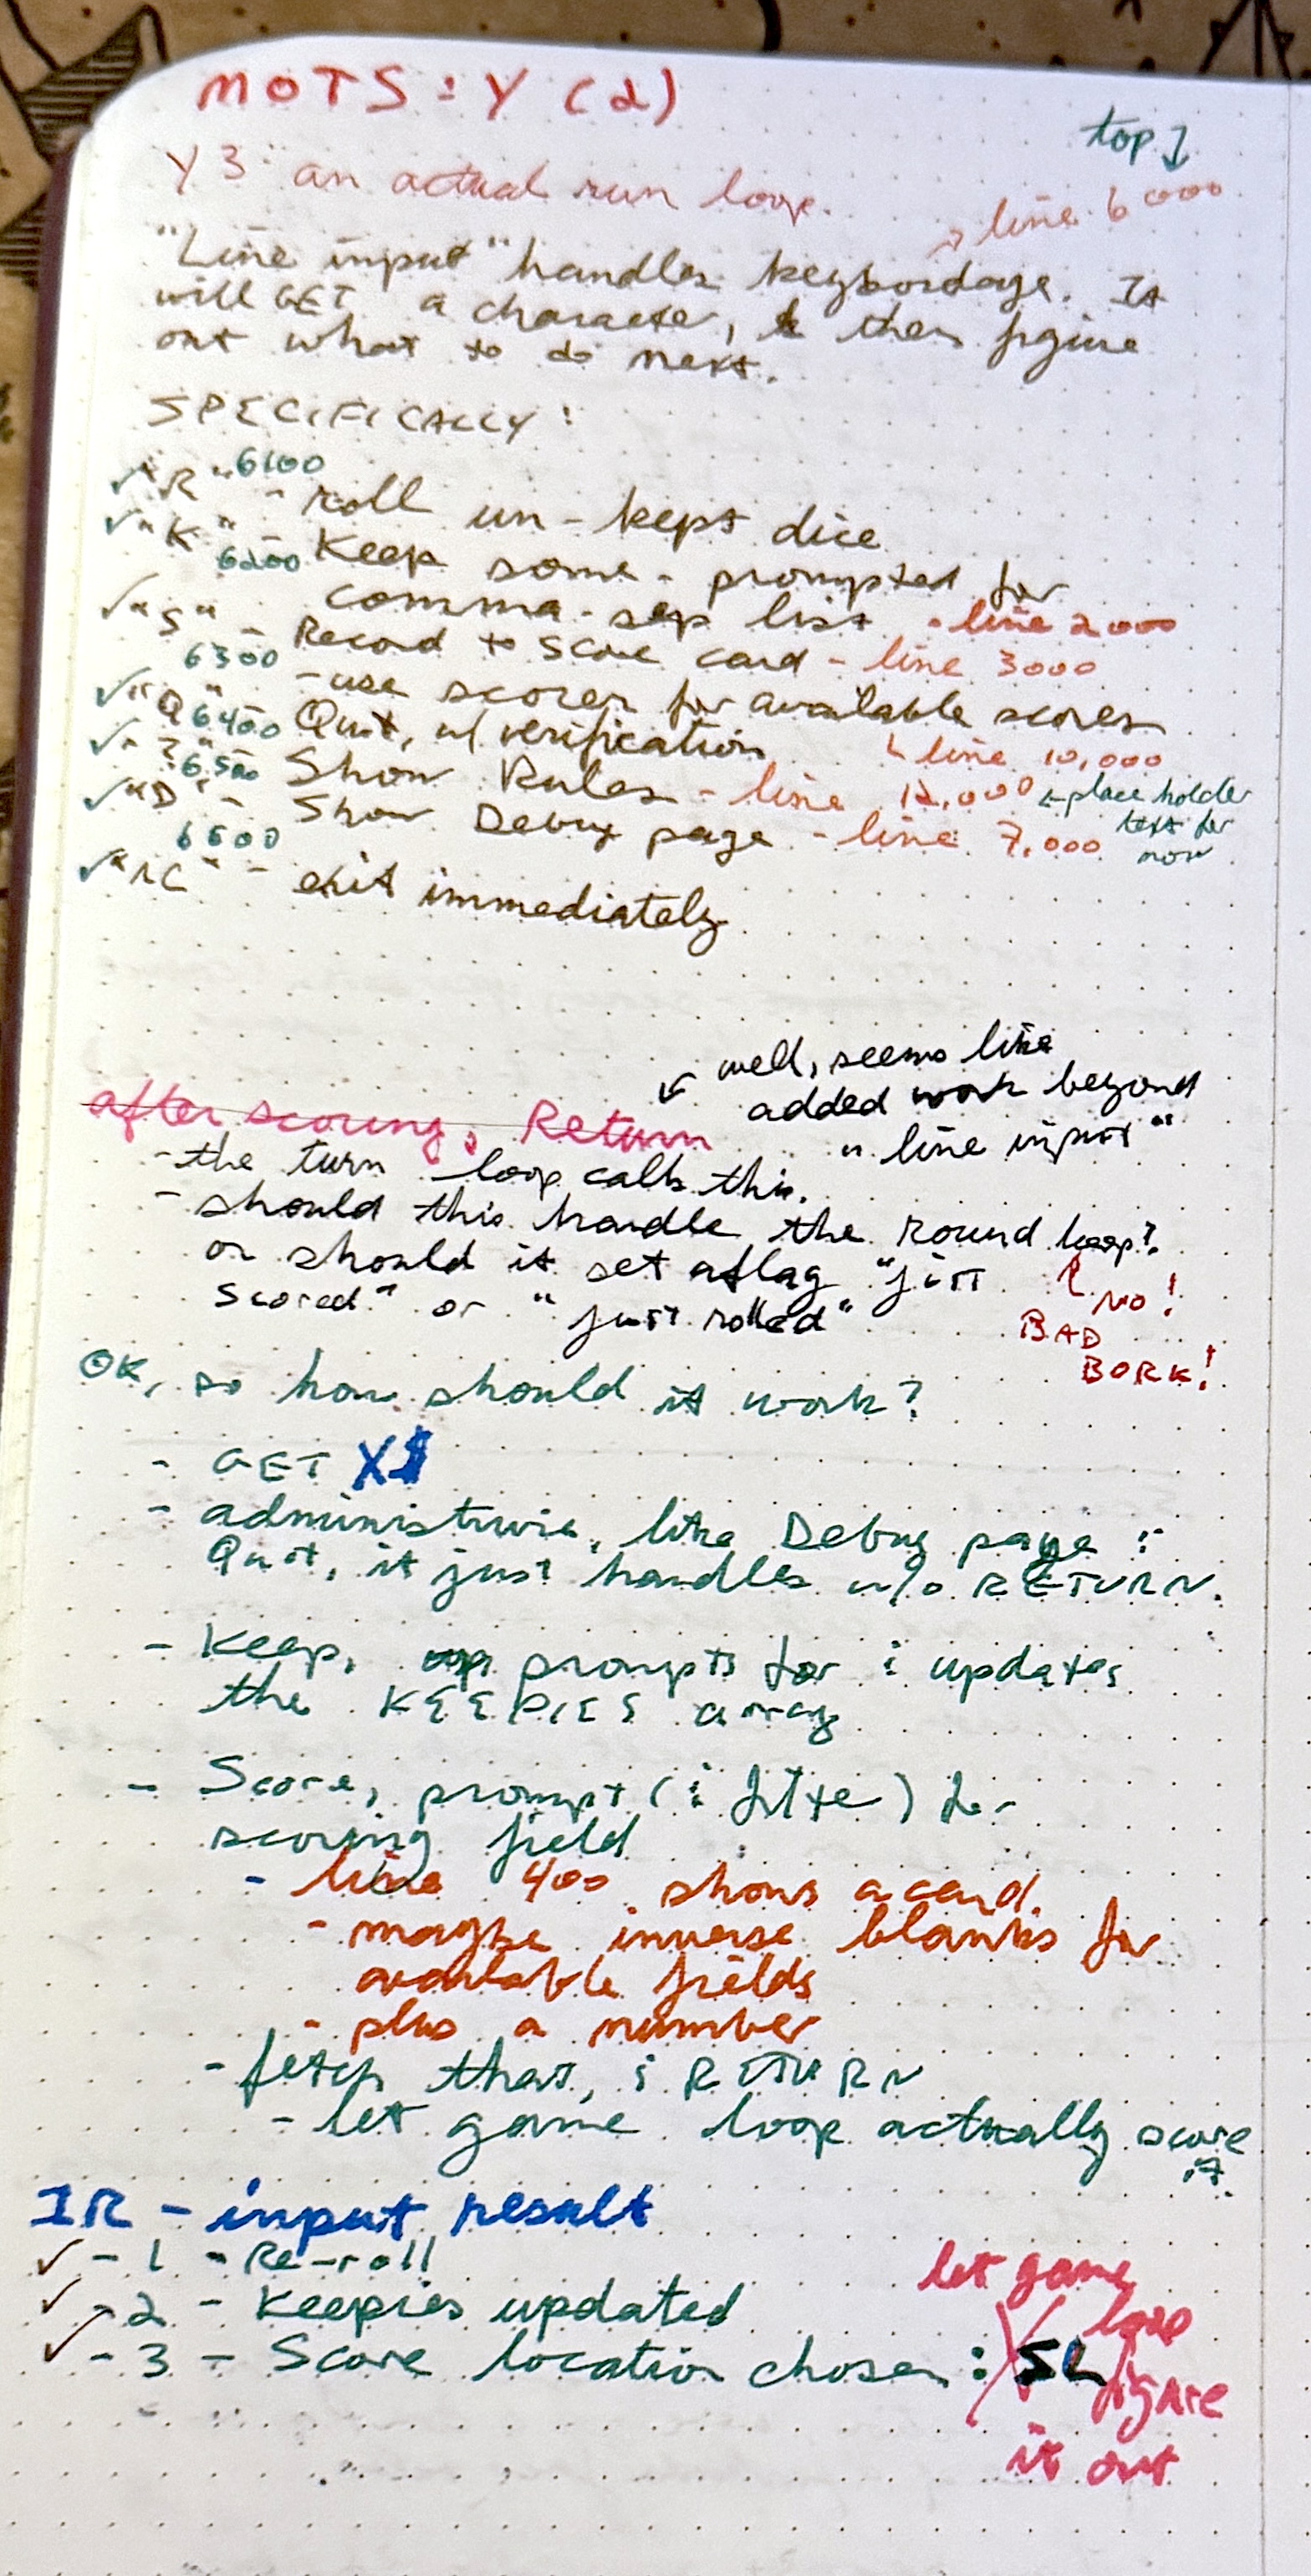 MOTS: Y (2)
top ↓
Y3 an actual run loop.
→ line 6000
"Line input" handles keybordage. It
will GET a character, & then figure
out what to do next.
SPECIFICALLY:
✓ "R" 6100 - roll un-kept dice
✓ "K" - Keep some - prompted for
6200
comma-sep list - line 2000
✓ "S" - Record to score card - line 3000
6300
- use scorer for available scores
└ line 10,000
✓ "Q" 6400 - Quit, w/ verification
✓ "?" 6500 - Show Rules - line 12,000 ← place holder
text for
now
✓ "D" - Show Debug page - line 7,000
6600
✓ "^C" - exit immediately
well, seems like
added work beyond
"line input"
after scoring, Return
- the turn loop calls this.
- should this handle the round loop?
or should it set a flag "just
scored" or "just rolled"
NO!
BAD
BORK!
OK, so how should it work?
- GET X$
- administrivia, like Debug page &
Quit, it just handles w/o RETURN.
- Keep, prompts for & updates
the KEEPIES array
- Score, prompt (& filter) for
scoring field
- line 400 shows a card
- maybe inverse blanks for
available fields
- plus a number
- fetch that, & RETURN
- let game loop actually score
it.
IR - input result
✓ - 1 - Re-roll
✓ - 2 - Keepies updated
✓ - 3 - Score location chosen: SL
let game
loop
figure
it out